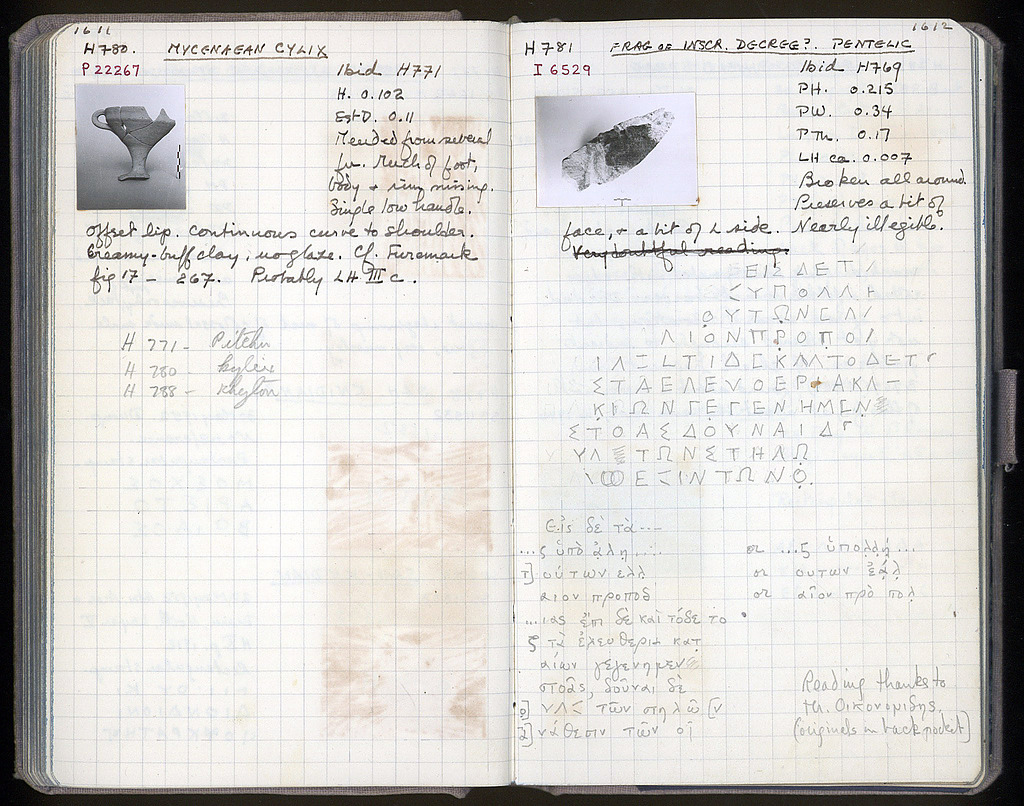 1611
H780. MYCENAEAN CYLIX
P 22267
Ibid H771
H. 0.102
Est D. 0.11
Mended from several
fr. Much of foot,
body + rim missing.
Single low handle.
offset lip. Continuous curve to shoulder.
Creamy-buff clay; no glaze. Cf. Furumark
fig 17 – 267. Probably LH III C.
H 771 – Pitcher
H 780 kylix
H 788 – rhyton
1612
H781 FRAG OF INSCR. DECREE?. PENTELIC
I 6529
Ibid H769
PH. 0.215
PW. 0.34
PTh. 0.17
LH ca. 0.007
Broken all around.
Preserves a bit of
face, + a bit of L side. Nearly illegible.
Very doubtful reading.
ΕΙΣ ΔΕΤ
ΥΠΟΛΛ
ΟΥΤΩΝΕΛ
ΛΙΟΝΠΡΟΠΟ
ΣΤΑΕΛΕΥΘΕΡΙΑΚΛ
ΚΙΩΝΓΕΓΕΝΗΜΕΝ
ΣΤΟΑΣΔΟΥΝΑΙΔ
ΥΛ ΤΩΝΣΤΗΛΩ
ΘΕΣΙΝΤΩΝΟ
Εἰς δὲ τὰ ---
...ς ὑπὸ ἀλη.... or ...ς ὑπολλή...
Τ] ούτων ελλ or ουτων ἐάλ
αιον προποδ or αῖον πρὸ πολ
...ιας ἐπὶ δὲ καὶ τόδε το
ς τὰ ἐλευθερια κατ
αίων γεγενημεν
στοᾶς, δοῦναι δὲ
τῶν στηλῶ[ν
νάθεσιν τῶν οἱ
Reading thanks to
Th. Οικονομίδης.
(originals in back pocket)